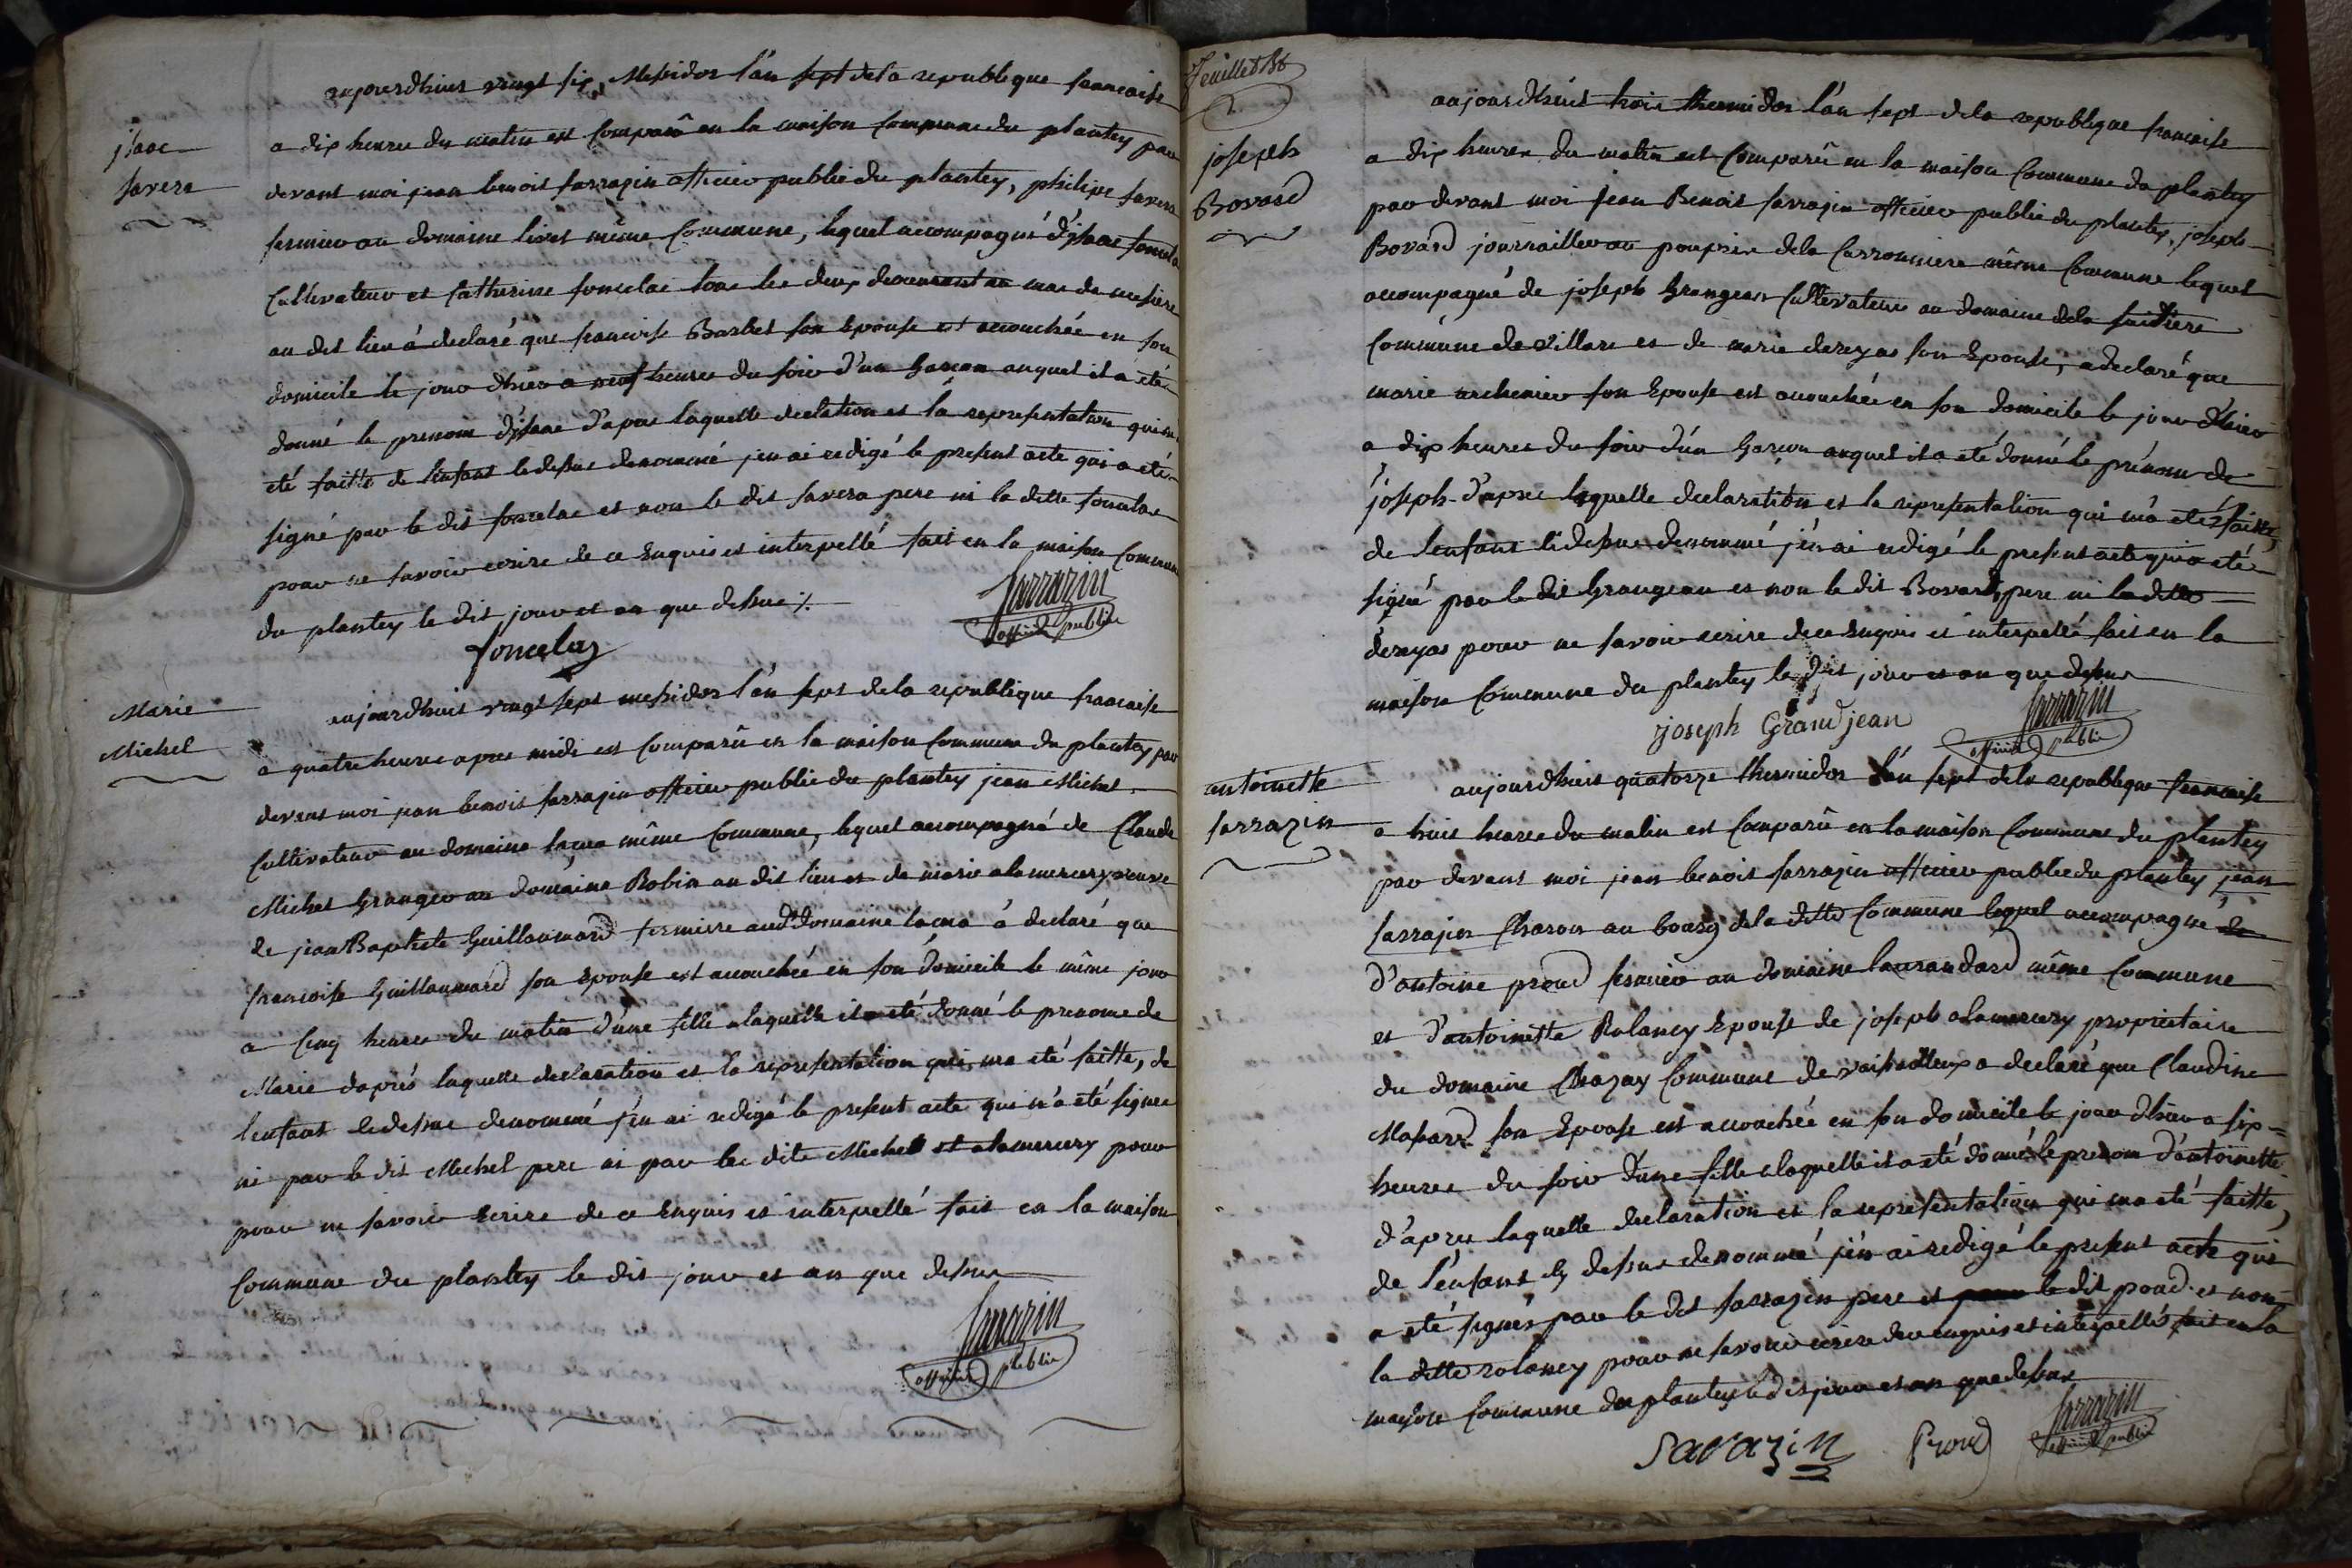 isaac
favera
aujourdhuit vingt six Messidor l'an sept dela republique francaise
a dix heures du matin est Comparû en la maison Commune du plantey par
devant moi jean benoit sarrazin officier public du plantey, philipe favera
fermier au domaine livet même Commune, lequel accompagné d'isaac
Cultivateur et Catherine tous les deux demeurant au mas de
au dit lieu á declaré que francoise Barbet son Epouse est accouchée en son
domicile le jour dhier a neuf heures du soir d'un Garcon auquel il a eté
donné le prenom d'isaac d'apres laquelle declation et la representation qui m'a
eté faitte de l'enfant ledessus denommé jen ai redigé le present acte qui a eté
signé par le dit et non le dit favera pere ni la ditte
pour ne savoir ecrire de ce Enquis et interpellé fait en la maison Commune
du plantey le dit jour et an que dessus ./.
foncelas
Sarrazin
officier public
Marie
Michel
aujourdhuit vingt sept messidor l'an sept dela republique francaise
a quatre heures apres midi est Comparû en la maison Commune du plantey par
devant moi jean benoit sarrazin officier public du plantey jean Michel
Cultivateur au domaine même Commune, lequel accompagné de Claude
Michel Granger au domaine Robin au dit lieu et de marie alamercery veuve
de jean Baptiste Guillaumard fermiere aud domaine á declaré que
francoise Guillaumard son Epouse est accouchée en son domicile le même jour
a Cinq heures du matin d'une fille a laquelle il a eté donné le prenom de
Marie d'aprés laquelle declaration et la representation qui ma eté faitte, de
lenfant ledessus denommé j'en ai redigé le present acte qui n'a eté signé
ni par le dit Michel pere ni par les dits Michel et alamercery pour
pour ne savoir Ecrire de ce Enquis et interpellé fait en la maison
Commune du plantey le dit jour et an que dessus
Sarrazin
officier public
Feuillet
joseph
Bovard
aujourdhuit trois thermidor l'an sept dela republique francaise
a dix heures du matin est Comparû en la maison Commune du plantey
par devant moi jean Benoit sarrazin officier public du plantey, joseph
Bovard journallier au dela Carronniere même Commune lequel
accompagné de joseph Grangean Cultivateur au domaine dela
Commune de villars et de marie son Epouse, a declaré que
marie son Epouse est accouchée en son domicile le jour d'hier
a dix heures du soir d'un Garcon auquel il a eté donné le prénom de
joseph d'apres laquelle declaration et la representation qui m'a eté faitte,
de lenfant lidessus denommé j'en ai redigé le present acte qui a eté
signé par le dit Grangean et non le dit Bovard pere ni la ditte
pour ne savoir ecrire de ce Enquis et interpellé fait en la
maison Commune du plantey le dit jour et an que dessus
joseph Grandjean
Sarrazin
officier public
antoinette
sarrazin
aujourdhuit quatorze thermidor l'an sept dela republique francaise
a huit heures du matin est Comparû en la maison Commune du plantey
par devant moi jean benoit sarrazin officier public du plantey jean
sarrazin Charon au bourg dela ditte Commune lequel accompagné de
d'antoine proud fermier au domaine même Commune
et d'antoinette Rolancy Epouse de joseph alamercery proprietaire
du domaine Chazay Commune de a declaré que Claudine
son Epouse est accouchée en son domicile le jour dhier a six
heures du soir d'une fille a laquelle il a eté donné le prenom d'antoinette
d'apres laquelle declaration et la representation qui ma eté faitte,
de l'enfant cy dessus denommé j'en ai redigé le present acte qui
a eté signés par le dit sarrazin pere et le dit proud et non
la ditte rolancy pour ne savoir ecrire de ce enquis et interpellés fait en la
maison Commune du plantey le dit jour et an que dessus
Sarazin
Proud
Sarrazin
officier public